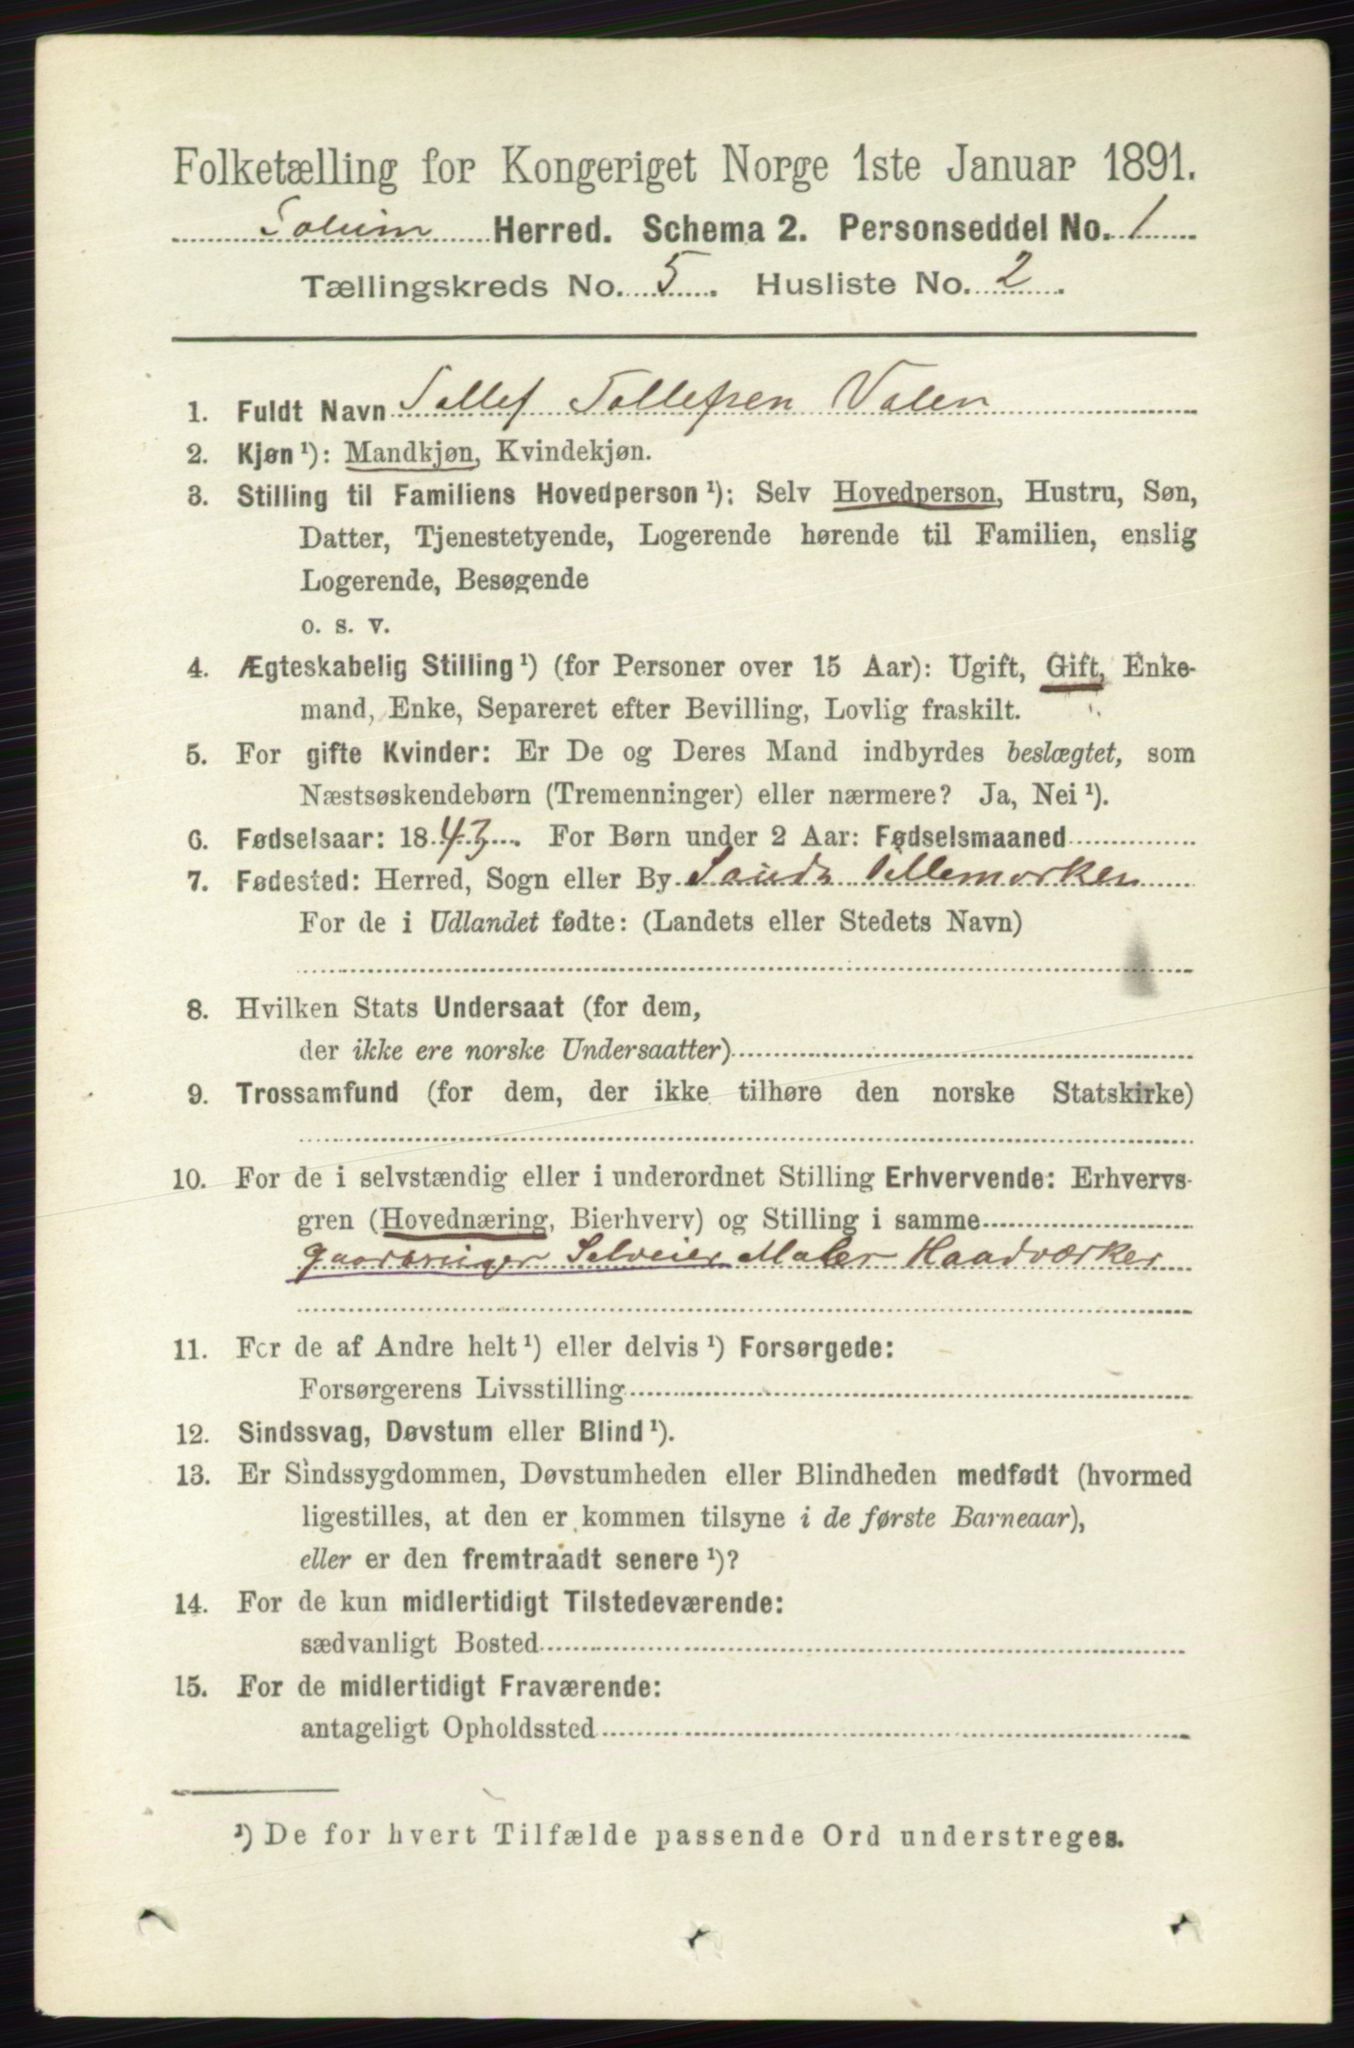 Folketælling for Kongeriget Norge 1ste Januar 1891.
Solum Herred. Schema 2. Personseddel No. 1
Tællingskreds No. 5. Husliste No. 2.
1. Fuldt Navn Tollef Tollefsen Valen
2. Kjøn ¹): Mandkjøn, Kvindekjøn.
3. Stilling til Familiens Hovedperson ¹): Selv Hovedperson, Hustru, Søn,
Datter, Tjenestetyende, Logerende hørende til Familien, enslig
Logerende, Besøgende
o. s. v.
4. Ægteskabelig Stilling ¹) (for Personer over 15 Aar): Ugift, Gift, Enke-
mand, Enke, Separeret efter Bevilling, Lovlig fraskilt.
5. For gifte Kvinder: Er De og Deres Mand indbyrdes beslægtet, som
Næstsøskendebørn (Tremenninger) eller nærmere? Ja, Nei ¹).
6. Fødselsaar: 1843. For Børn under 2 Aar: Fødselsmaaned
7. Fødested: Herred, Sogn eller By Saude Tellemarken
For de i Udlandet fødte: (Landets eller Stedets Navn)
8. Hvilken Stats Undersaat (for dem,
der ikke ere norske Undersaatter)
9. Trossamfund (for dem, der ikke tilhøre den norske Statskirke)
10. For de i selvstændig eller i underordnet Stilling Erhvervende: Erhvervs-
gren (Hovednæring, Bierhverv) og Stilling i samme
gaardbruger Selveier Maler Haadværker
11. For de af Andre helt ¹) eller delvis ¹) Forsørgede:
Forsørgerens Livsstilling
12. Sindssvag, Døvstum eller Blind ¹).
13. Er Sindssygdommen, Døvstumheden eller Blindheden medfødt (hvormed
ligestilles, at den er kommen tilsyne i de første Barneaar),
eller er den fremtraadt senere ¹)?
14. For de kun midlertidigt Tilstedeværende:
sædvanligt Bosted
15. For de midlertidigt Fraværende:
antageligt Opholdssted
¹) De for hvert Tilfælde passende Ord understreges.